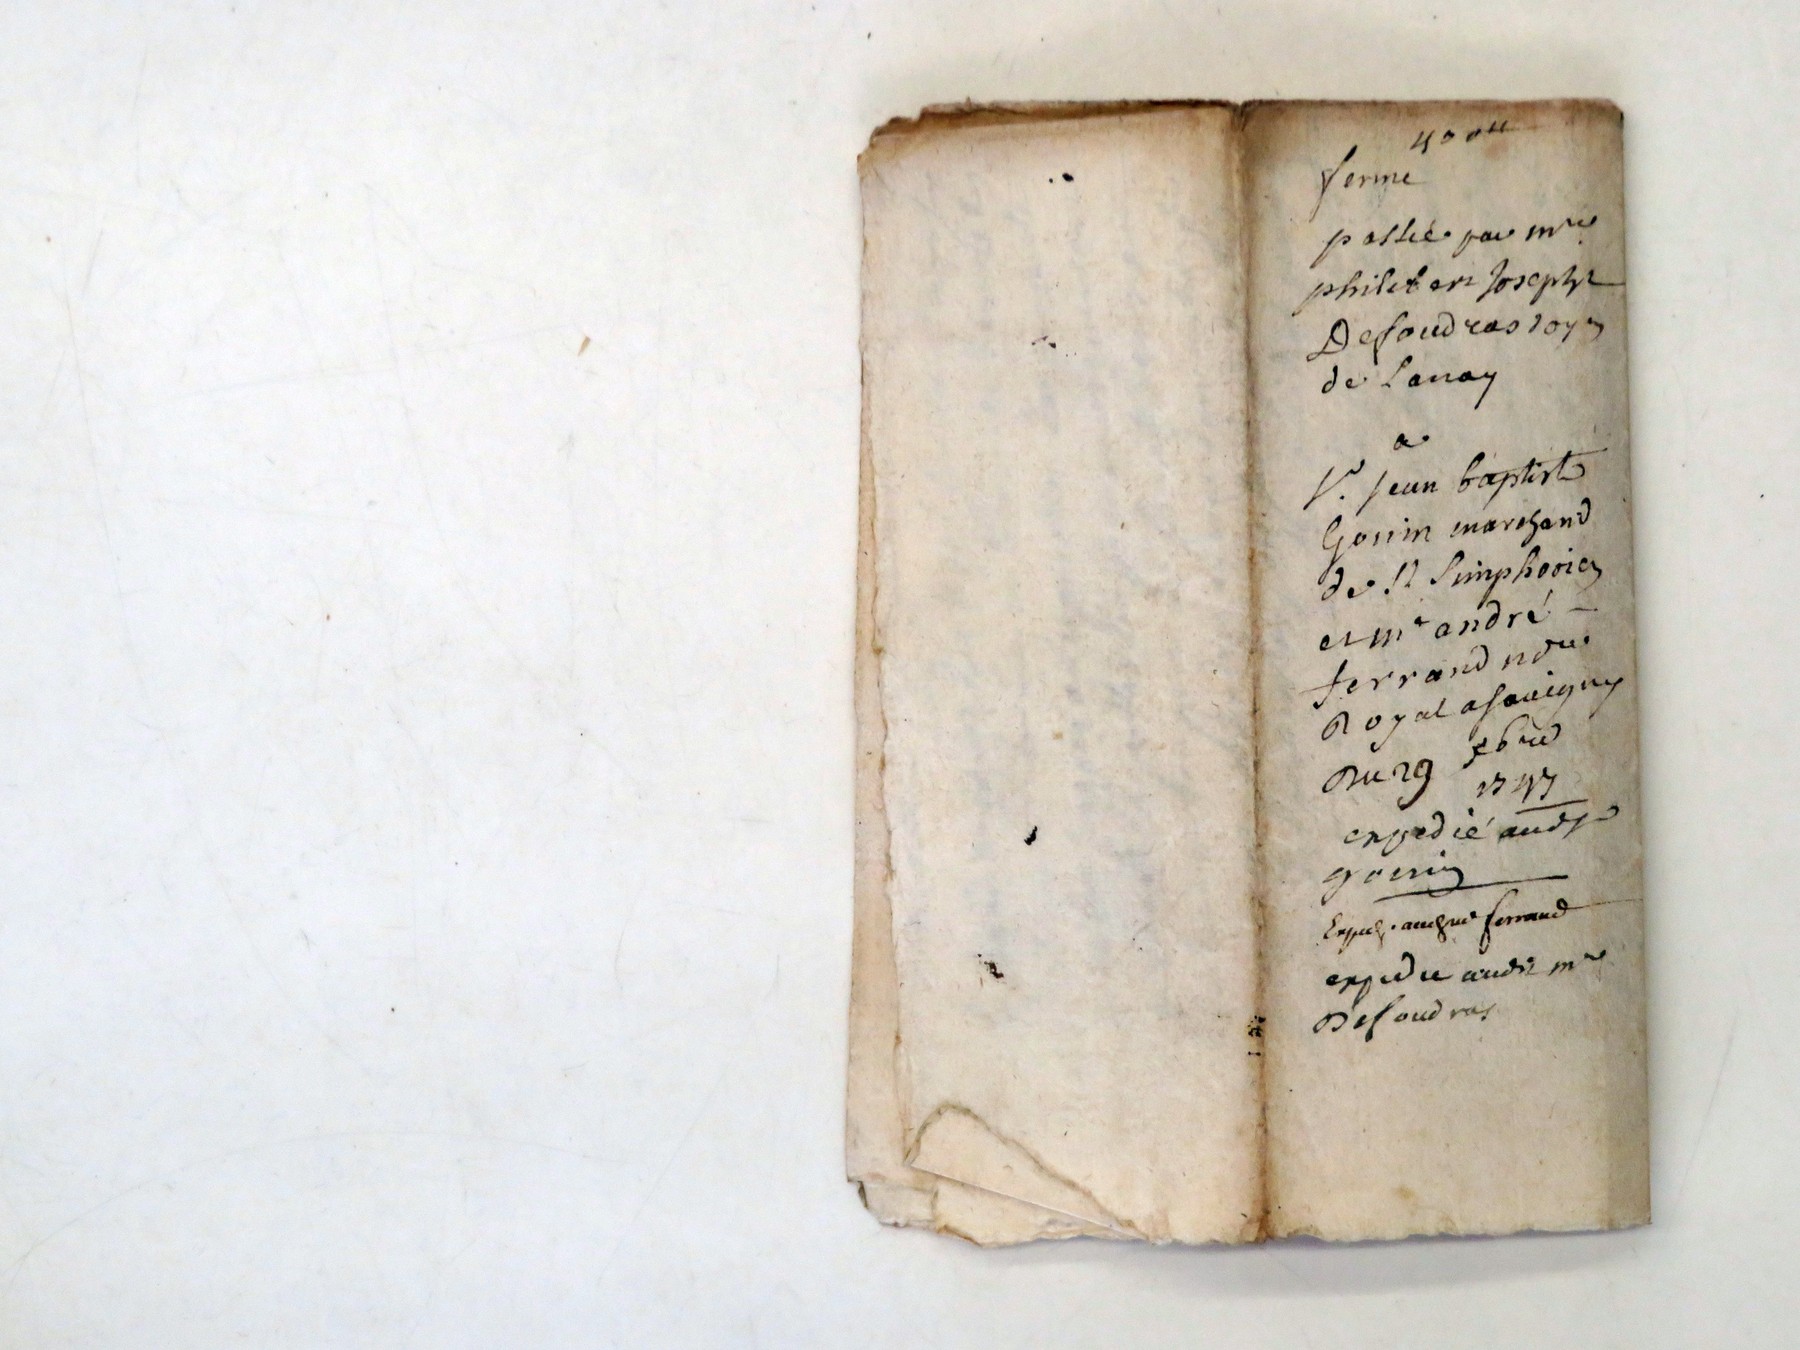 400lt
ferme
passée par mre
philibert Joseph
Defoudras doyen
de Lanay
a
Sr. Jean baptiste
Gonin marchand
de St Simphorien
et me andré
ferrand nore
Royal a savigny
Du 29 xbre
1747
expedié audt sr
gonin
Exped. audt me ferrand
expedie audit mre
Defoudras